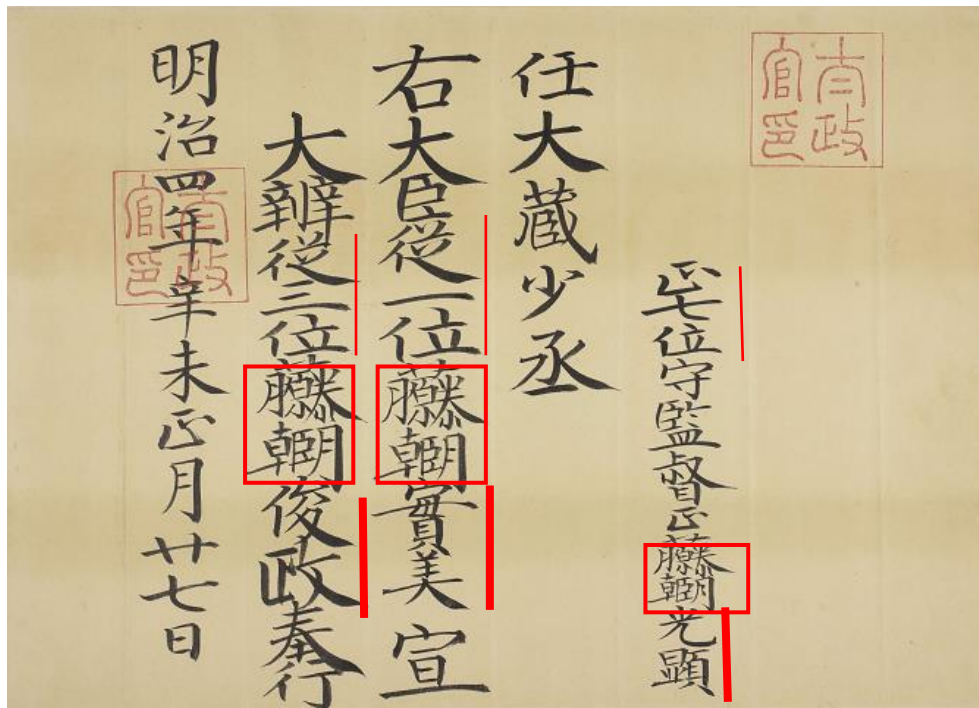 太政官印
正七位守監督正藤原朝臣光顕
任大蔵少丞
右大臣従一位藤原朝臣實美宣
大辨従三位藤原朝臣俊政奉行
明治四年辛未正月廿七日
太政官印